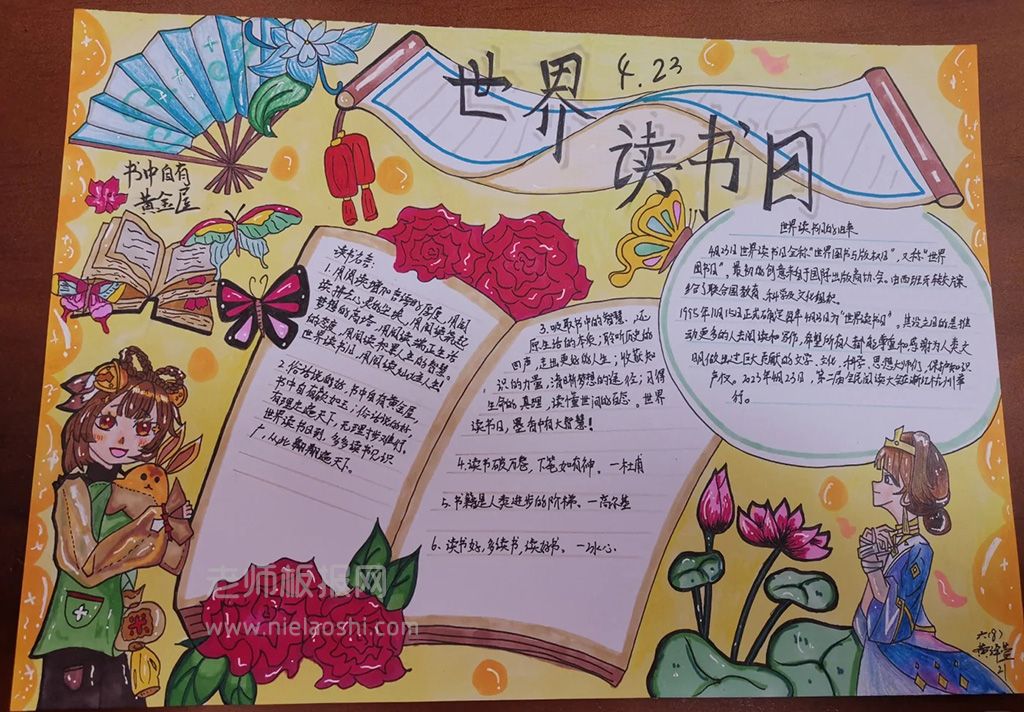 世界
4.23
读书日
书中自有
黄金屋
世界读书日的由来
4月23日世界读书日全称"世界图书与版权日",又称"世界
图书日",最初的创意来自于国际出版商协会。由西班牙转交
给了联合国教育、科学及文化组织。
1995年11月15日正式确定每年4月23日为"世界读书日"。其设立目的是推
动更多的人去阅读和写作,希望所有人都能尊重和感谢为人类文
明做出过巨大贡献的文学、文化、科学、思想大师们,保护知识
产权。2023年4月23日,第二届全民阅读大会在浙江杭州举
行。
读书名言:
1.用阅读增加
读
梦想的高塔,用阅读
的深度,用阅读
世界读书日,用阅读
2.俗话说的好,书中自有黄金屋
书中自有颜如玉;俗话说的好,
有理走遍天下,无理寸步难行。
世界读书日到,多多读书见识
广,从此翱翔遍天下。
3.吸取书中的智慧,还
原生活的本来;聆听历史的
回声,走出更好的人生;收获知
识的力量,清晰梦想的定位;习得
生命的真理,读懂世间的百态。世界
读书日,墨香中有大智慧!
4.读书破万卷,下笔如有神。—杜甫
5.书籍是人类进步的阶梯。—高尔基
6.读书好,多读书,读好书。—冰心
老师板报网
www.nielaoshi.com
六(8)
2